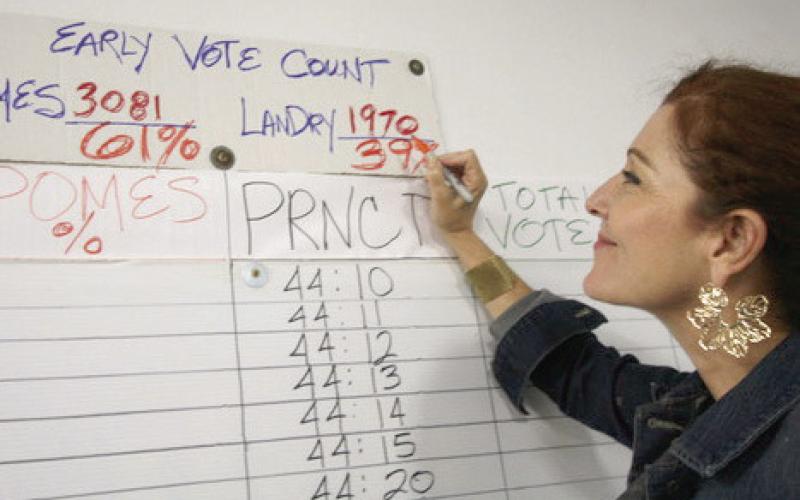 EARLY VOTE COUNT
MES 3081 LANDRY 1970
61% 39%
POMES PRNCT TOTAL
% VOTE
44:10
44:11
44:12
44:13
44:14
44:15
44:20